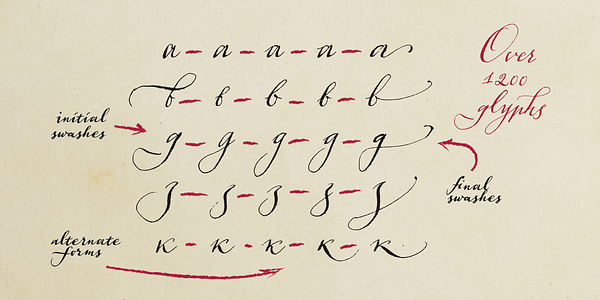 a - a - a - a - a
b - b - b - b - b
g - g - g - g - g
z - z - z - z - z
k - k - k - k - k
Over
1200
glyphs
initial
swashes
final
swashes
alternate
forms